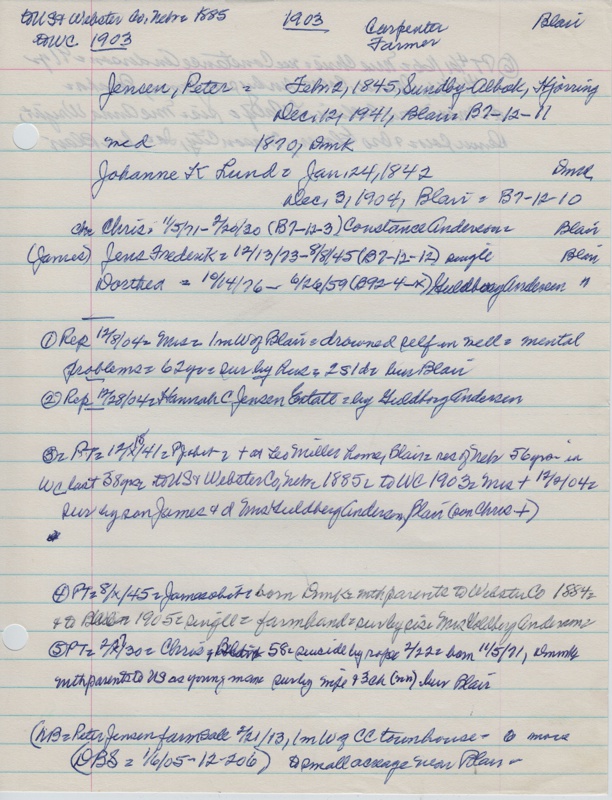 to US & Webster Co, Nebr 1885 1903 Carpenter Blair
to WC 1903 Farmer
Jensen, Peter = Feb 2, 1845, Sundby Alboek, Hjorring
Dec, 12, 1941, Blair = B7-12-11
med 1870, Dmk
Johanne K Lund = Jan 24, 1842 Dmk
Dec, 3, 1904, Blair = B7-12-10
ch Chris = 11/5/71 - 2/20/30 (B7-12-3) Constance Anderson = Blair
(James) Jens Frederik = 12/13/73 - 8/8/45 (B7-12-12) single Blair
Dorthea = 10/14/76 - 6/26/59 (B92-4-x) Guldborg Andersen "
① Rep 12/8/04 = Mrs = 1 m W of Blair = drowned self in well = mental
problems = 62 yr = sur by hus = 2s1d = bur Blair
② Rep 12/28/04 = Hannah C Jensen Estate = by Guldborg Andersen
③ = PT = 12/x/41 = P obit = + at Leo Miller home, Blair = res of Nebr 56 yrs = in
WC last 38 yrs = to US & Webster Co, Nebr 1885 = to WC 1903 = Mrs + 12/3/04 =
sur by son James & d Mrs Guldberg Andersen, Blair (son Chris +)
④ PT = 8/x/45 = James obit = born Dmk = with parents to Webster Co 1884 =
& to Blair 1905 = single = farmhand = sur by sis = Mrs Goldberg Andersen
⑤ PT = 2/x/30 = Chris, Blair 58 = suicide by rope 2/22 = born 11/5/71, Dmk
with parents to US as young man = sur by wife & 3 ch (nn) bur Blair
(NB = Peter Jensen farm sale 2/21/13, 1 m W of CC townhouse = to move
(OBS = 1/6/05-12-206) to small acreage near Blair =